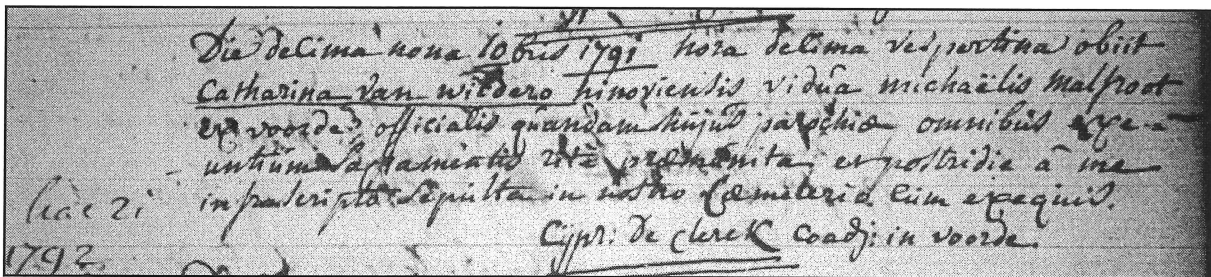 Die decima nona 10bris 1791 hora decima vespertina obiit
Catharina van wildero hinoviensis vidua michaëlis malfroot
ex voorde, officialis quandam hujus parochiæ omnibus exe-
untium sacramentis ritè præmunita, et postridie à me
infrascripto sepulta in nostro Cæmeterio cum exequiis.
Cypr: De clerck coadj: in voorde.
1792